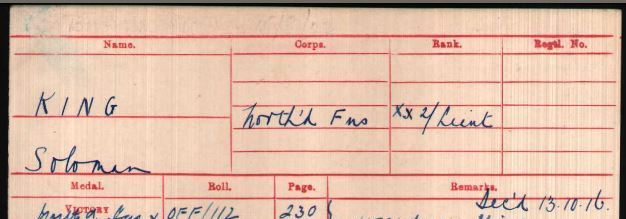 Name. Corps. Rank. Regtl. No.
KING North'd Fus xx 2/Lieut
Soloman
Medal. Roll. Page. Remarks.
Dec'd 13.10.16.
VICTORY OFF/112 230